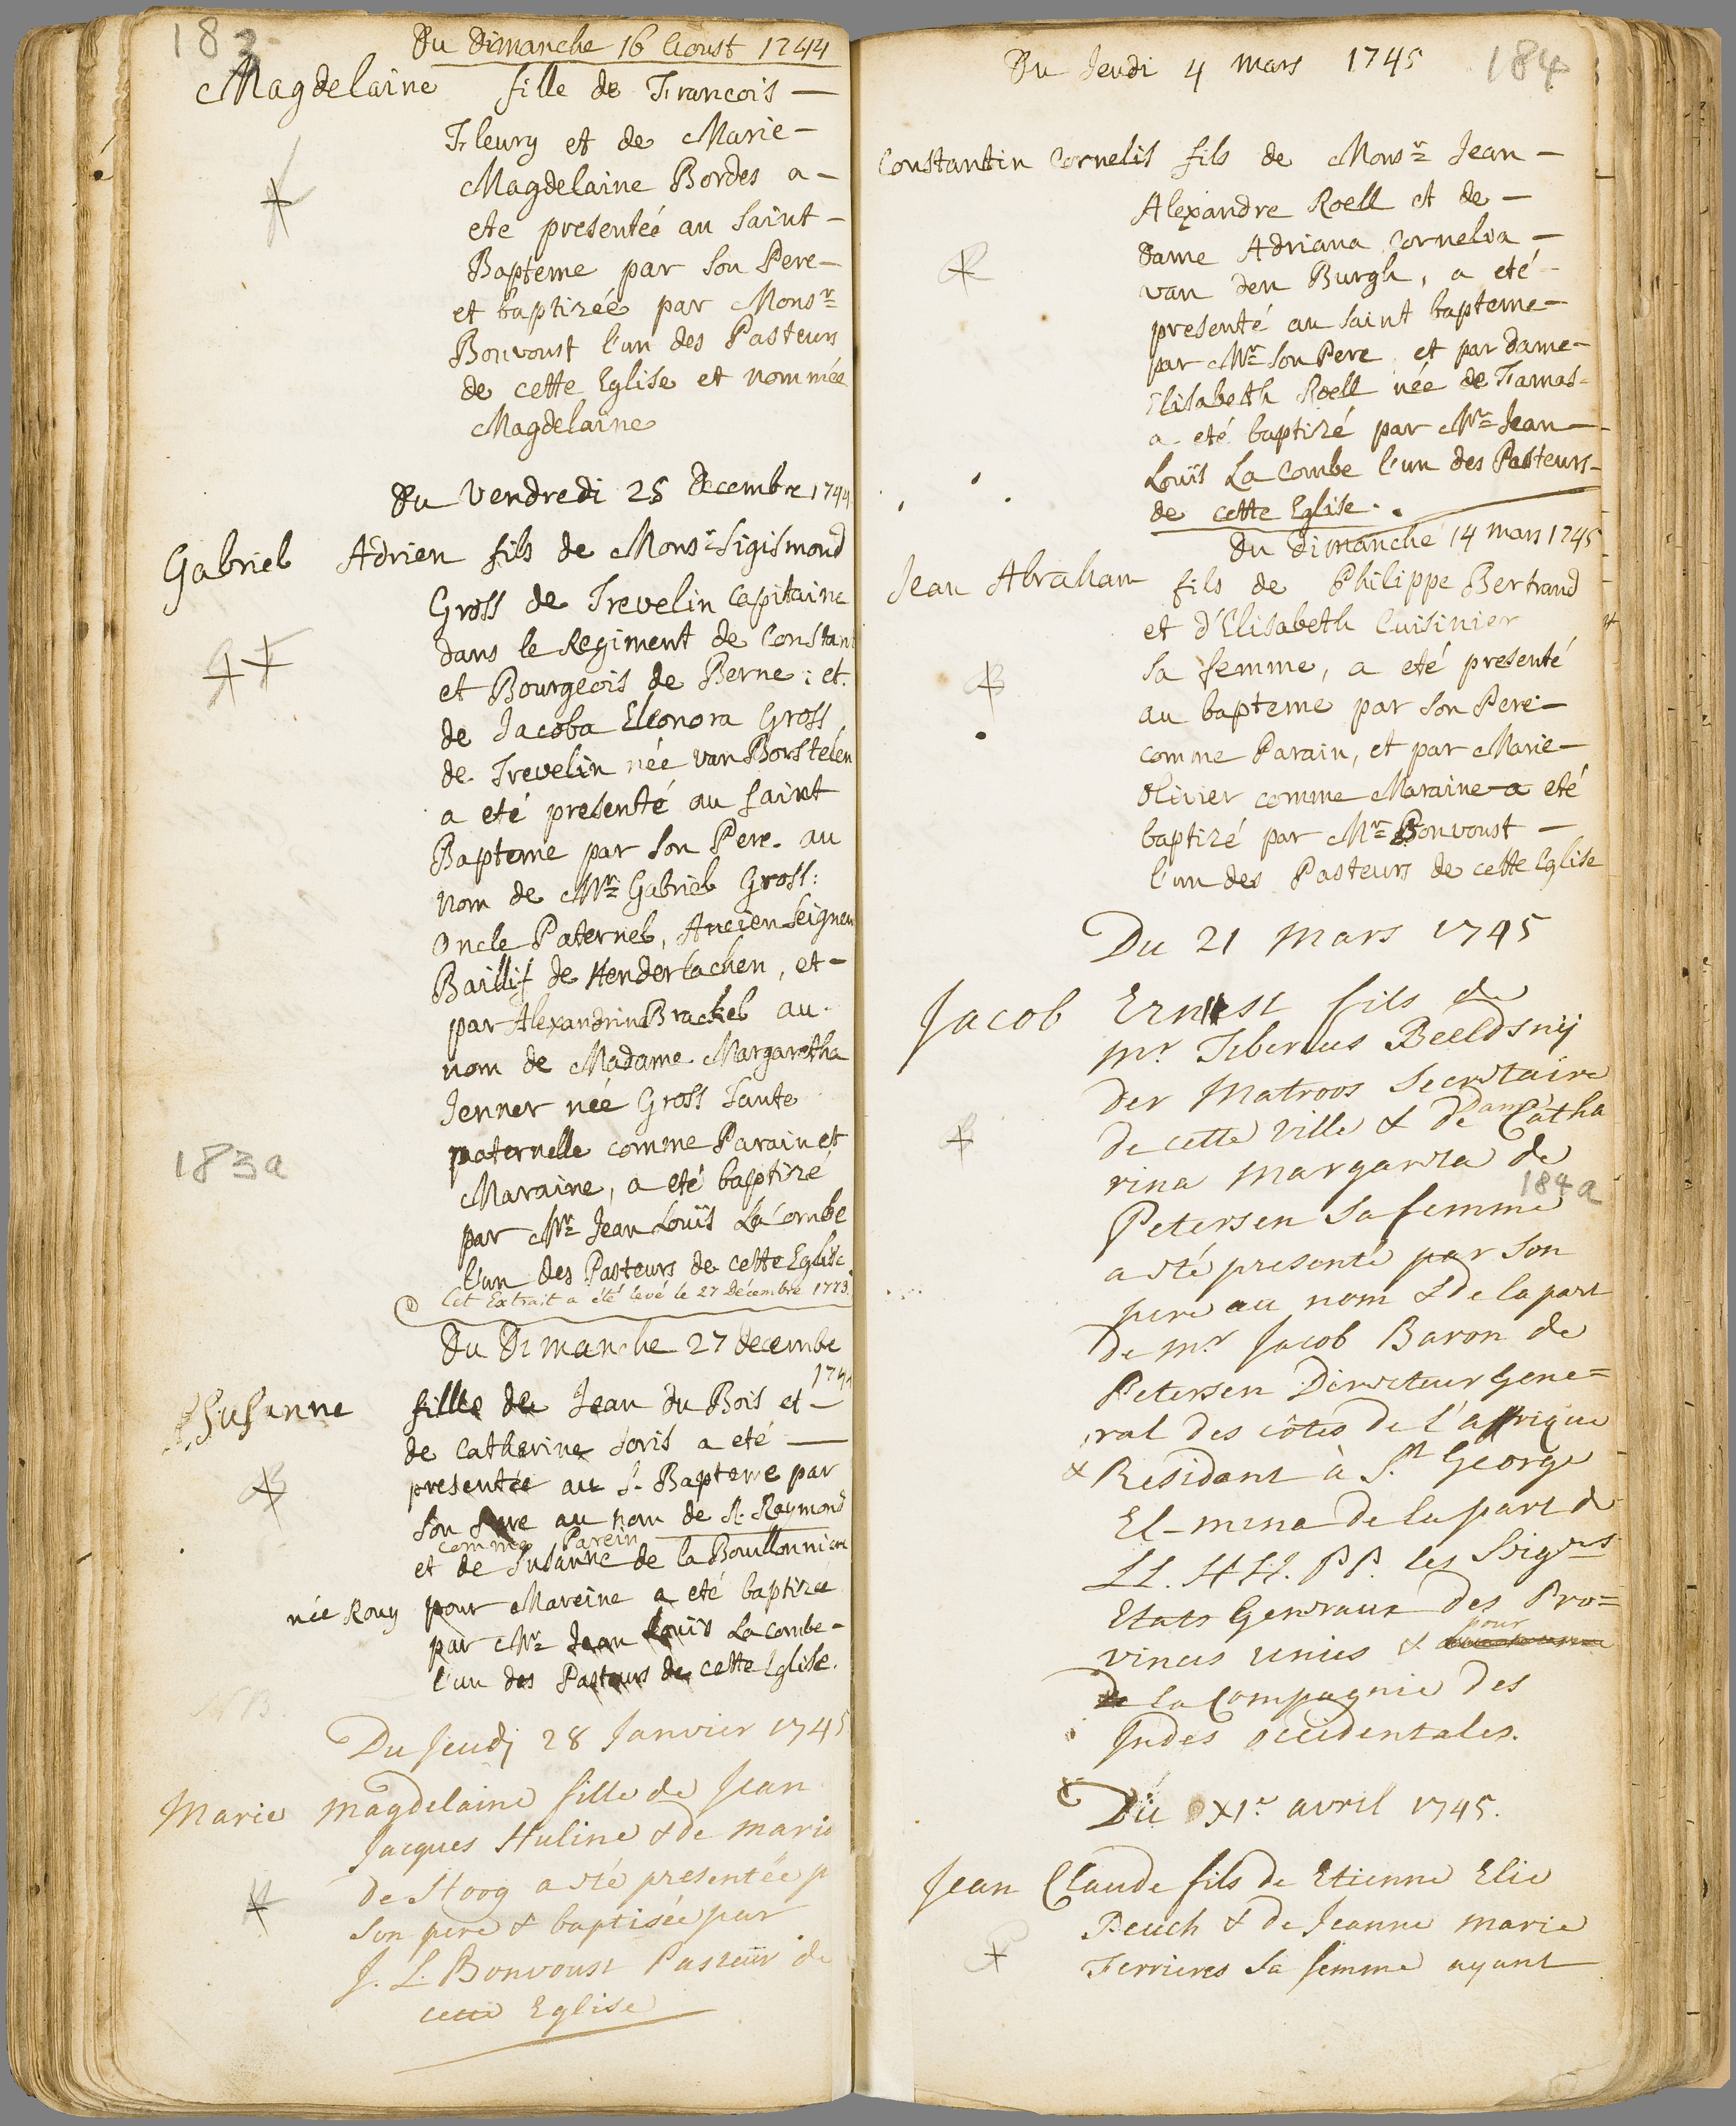 183
Du Dimanche 16 Aoust 1744
Magdelaine fille de Francois —
Fleury et de Marie —
Magdelaine Bordes a —
ete presenteé au Saint —
Bapteme par Son Pere —
et baptizéé par Monsr
Bonvoust l'un des Pasteurs
de cette Eglise et nommée
Magdelaine
Du Vendredi 25 Decembre 1744
Gabriel Adrien fils de Monsr Sigismond
Gross de Trevelin Capitaine
dans le Regiment de Constant
et Bourgeois de Berne ; et
de Jacoba Eleonora Gross
de Trevelin née van Borstelen
a eté presenté au Saint
Bapteme par Son Pere. au
nom de Mr Gabriel Gross :
Oncle Paternel, Ancien Seigneur
Baillif de Henderlachen, et —
par Alexandrin Brackel au
nom de Madame Margaretha
Jenner née Gross Tante
paternelle comme Parain et
Maraine, a eté baptizé
183a
par Mr Jean Louïs La Combe
l'un des Pasteurs de cette Eglise
Cet Extrait a été levé le 27 Décembre 1773.
Du Dimanche 27 decembe
174
Susanne fille de Jean du Bois et —
de Catherine Soris a eté —
presentée au S. Bapteme par
Son Pere au nom de St. Raymond
comme Parein
et de Susanne de la Boullonniere
née Rouy pour Mareine a eté baptizée
par Mr Jean Louis La Combe —
l'un des Pasteurs de cette Eglise.
NB.
Du Jeudj 28 Janvier 1745
Marie Magdelaine fille de Jean
Jacques Huline & de Marie
de Hoog a été presentée p
Son pere & baptisée par
J. L. Bonvoust Pasteur de
cette Eglise
184
Du Jeudi 4 Mars 1745
Constantin Cornelis fils de Monsr Jean —
Alexandre Roell et de —
Dame Adriana Cornelia —
van den Burgh, a eté —
presenté au Saint bapteme —
par Mr Son Pere et par Dame —
Elisabeth Roell née de Famas —
a eté baptizé par Mr Jean —
Louïs La Combe l'un des Pasteurs —
de cette Eglise.
Du Dimanche 14 Mars 1745
Jean Abraham fils de Philippe Bertrand
et d'Elisabeth Cuisinier
Sa femme, a eté presenté
au bapteme par Son Pere —
comme Parain, et par Marie —
Olivier comme Maraine a eté
baptizé par Mr Bonvoust —
l'un des Pasteurs de cette Eglise
Du 21 Mars 1745
Jacob Ernest fils de
Mr Tiberius Beeldsnij
der Matroos Secretaire
de cette Ville & de Dame Catha
rina Margareta de
184a
Petersen Sa femme
a eté presenté par Son
pere au nom & de la part
de Mr Jacob Baron de
Petersen Directeur Gene=
ral des côtes de l'affrique
& Residant à St George
El-mina de la part de
LL. HH. PP. les Seigrs
Etats Generaux des Pro=
vinces unies & pour
la Compagnie des
Indes occidentales.
Du XIe avril 1745.
Jean Claude fils de Etienne Elie
Peuch & de Jeanne Marie
Ferrieres Sa femme ayant